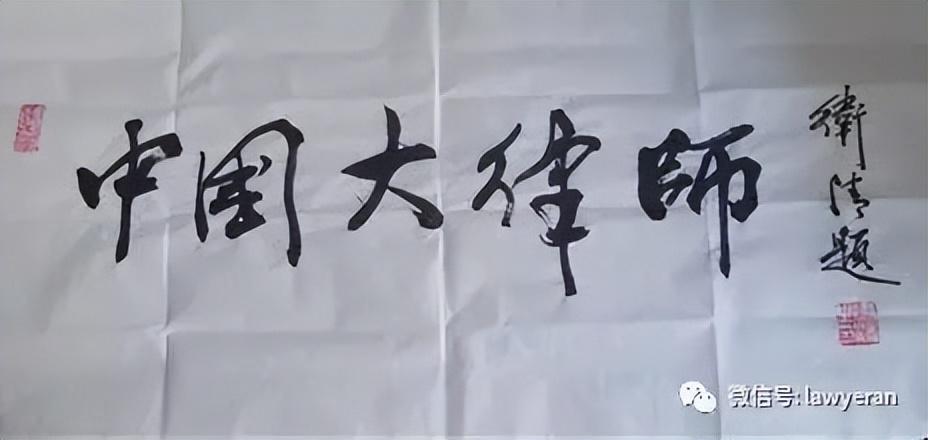 中国大律師
衛清题
微信号:lawyeran